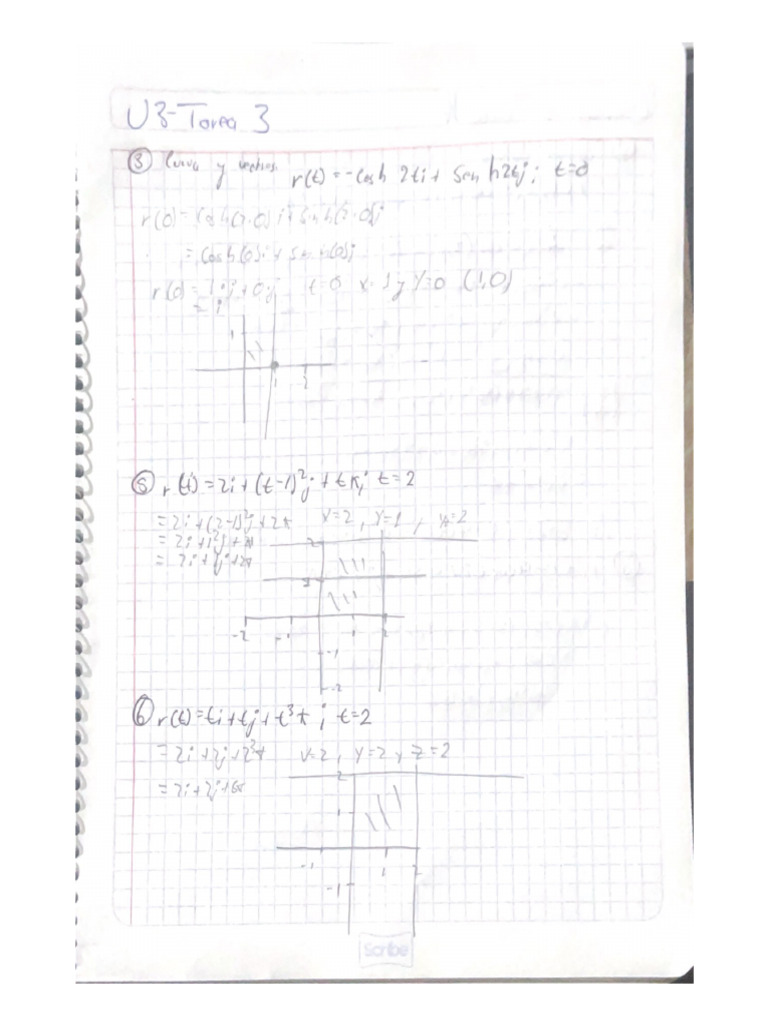 U3-Tarea 3
③ Curva y vectores. r(t) = -cosh 2ti + senh2tj; t=0
r(0) = cosh(2·0)i + senh(2·0)j
= cosh(0)i + senh(0)j
r(0) = 1·i + 0·j t=0 x=1 y Y=0 (1,0)
= i
1
1 2
⑤ r(t) = 2i + (t-1)²j + tk; t=2
= 2i + (2-1)²j + 2k x=2, y=1, z=2
= 2i + 1²j + 2k
= 2i + 1j + 2k
2
-2 -1 1 2
-1
-2
⑥ r(t) = ti + tj + t³k; t=2
= 2i + 2j + 2³k x=2, y=2, z=2
= 2i + 2j +
2
1
-1 1 2
-1
Scribe